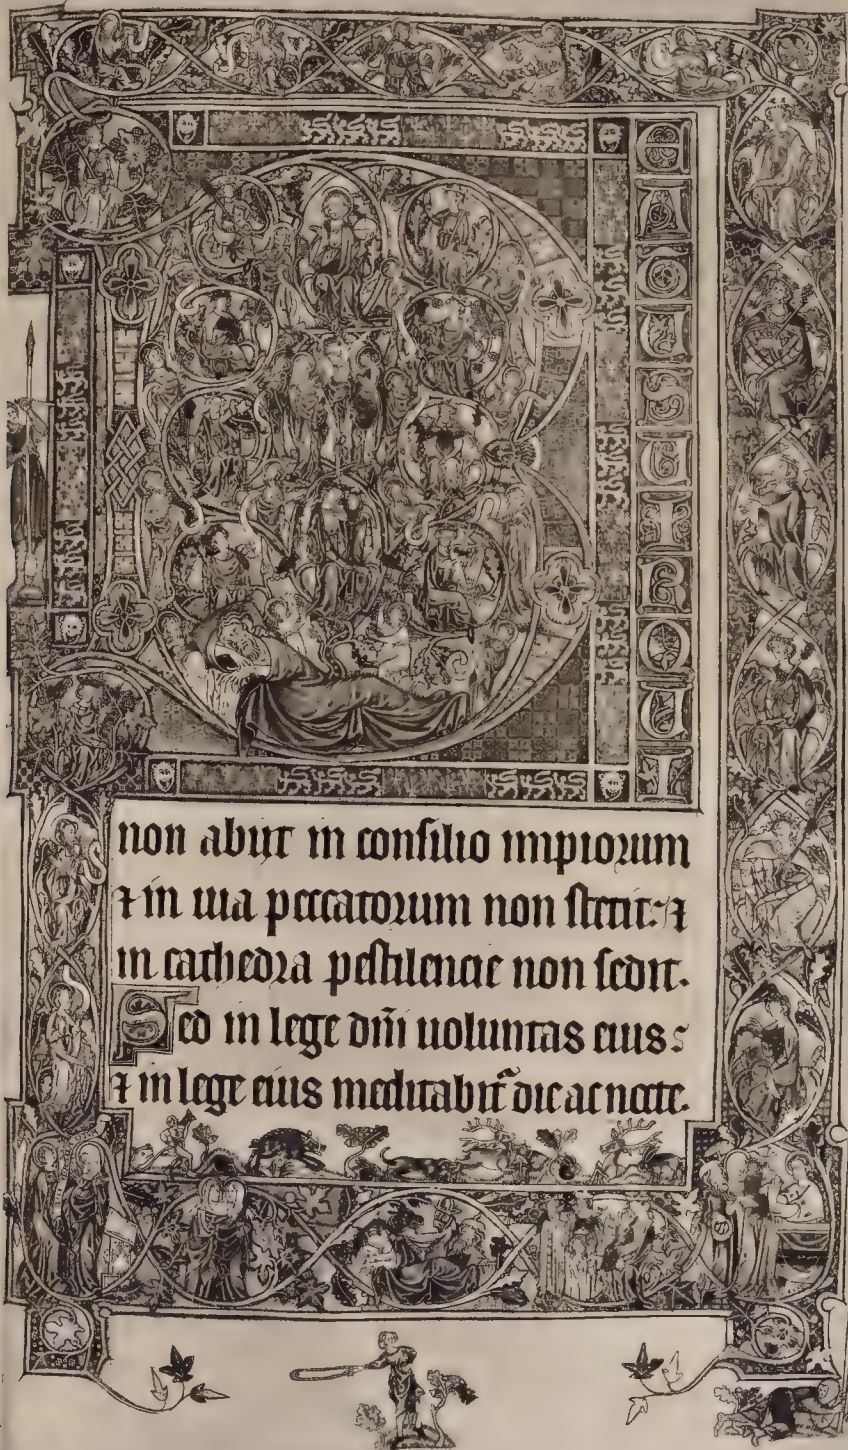 BEATUSUIRQUI
non abijt in conſilio impiorum
⁊ in uia peccatorum non ſtetit: ⁊
in cathedra peſtilencie non ſedit.
Sed in lege dñi uoluntas eius:
⁊ in lege eius meditabit᷑ die ac nocte.